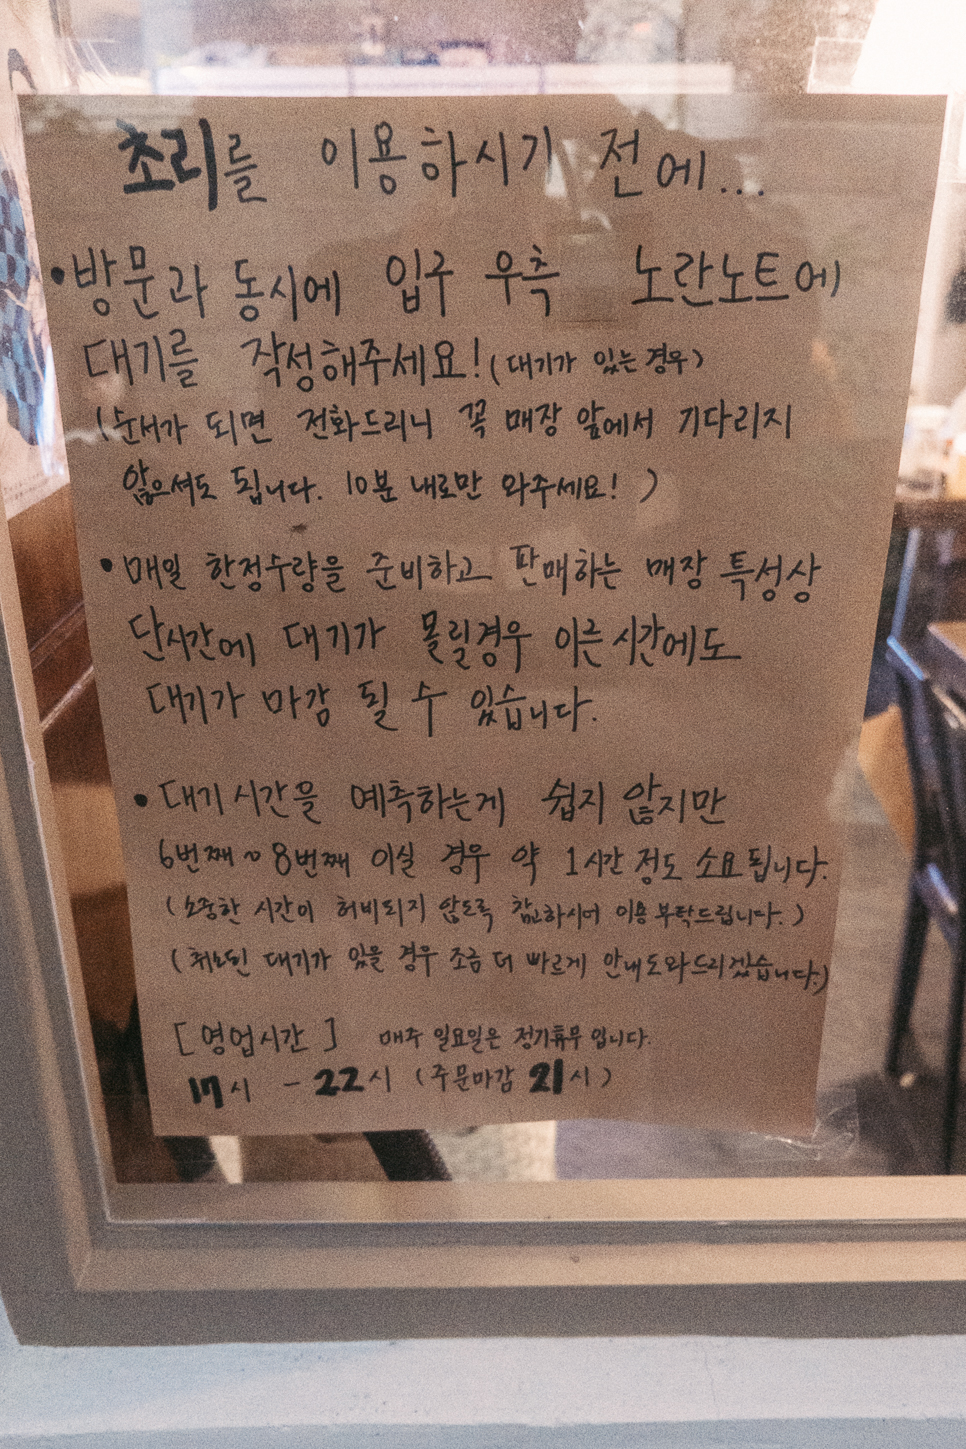 초리를 이용하시기 전에...
• 방문과 동시에 입구 우측 노란노트에
대기를 작성해주세요! (대기가 있는 경우)
(순서가 되면 전화드리니 꼭 매장 앞에서 기다리지
않으셔도 됩니다. 10분 내로만 와주세요! )
• 매일 한정수량을 준비하고 판매하는 매장 특성상
단시간에 대기가 몰릴경우 이른시간에도
대기가 마감 될 수 있습니다.
• 대기시간을 예측하는게 쉽지 않지만
6번째 ~ 8번째 이실 경우 약 1시간 정도 소요됩니다.
(소중한 시간이 허비되지 않도록 참고하시어 이용 부탁드립니다.)
( 대기가 있을 경우 조금 더 빠르게 안내도와드리겠습니다.)
[영업시간] 매주 일요일은 정기휴무 입니다.
17시 - 22시 (주문마감 21시)